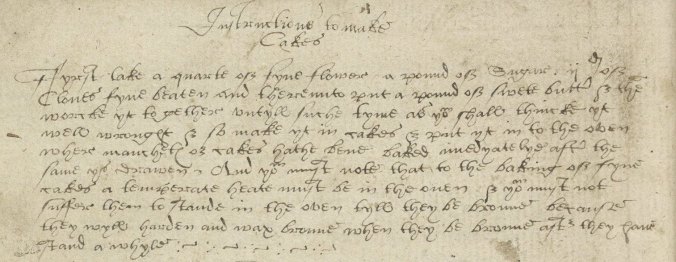 Instructions to make
Cakes
Fyrst take a quarte of fyne flower a pound of Sugar ij d of
Cloues fyne beaten and therevnto put a pound of swete butter & then
worcke yt togethers vntyll suche tyme as you shall thincke yt
well wrought & so make yt in cakes & put yt in to the oven
where manchet or cakes hathe bene baked imediatelye after the
same ys drawen. And you must note that to the baking of fyne
cakes a temperate heate must be in the oven & you must not
suffer them to stande in the oven tyll they be browne because
they wyll harden and wax browne when they be browne after they haue
stand a whyle